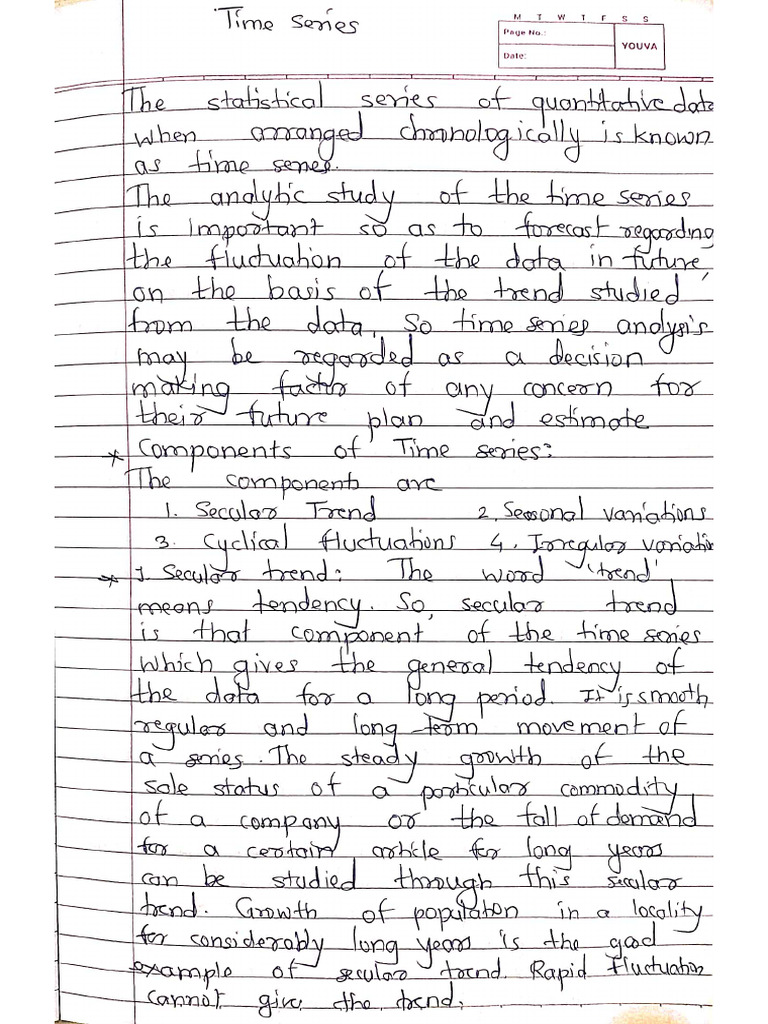 Time series
M T W T F S S
Page No.:
YOUVA
Date:
The statistical series of quantitative data
when arranged chronologically is known
as time series.
The analytic study of the time series
is important so as to forecast regarding
the fluctuation of the data in future,
on the basis of the trend studied
from the data. So time series analysis
may be regarded as a decision
making factor of any concern for
their future plan and estimate
* Components of Time series:
The components are
1. Secular Trend 2. Seasonal variations
3. Cyclical fluctuations 4. Irregular variatin
* 1. Secular trend: The word 'trend'
means tendency. So, secular trend
is that component of the time series
which gives the general tendency of
the data for a long period. It is smooth
regular and long term movement of
a series. The steady growth of the
sale status of a particular commodity
of a company or the fall of demand
for a certain article for long years
can be studied through this secular
trend. Growth of population in a locality
for considerably long years is the good
example of secular trend. Rapid fluctuation
cannot give the trend.